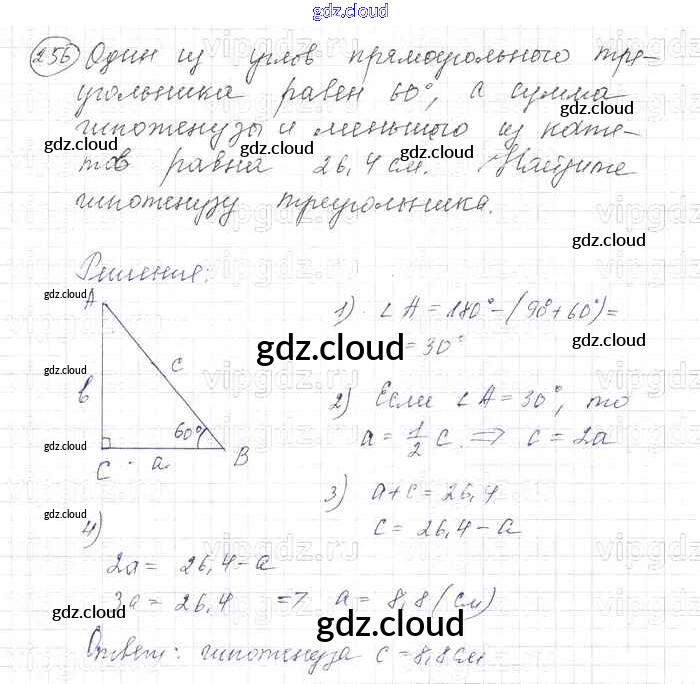 gdz.cloud
256 Один из углов прямоугольного тре-
угольника равен 60°, а сумма
гипотенузы и меньшого из кате-
тов равна 26,4 см. Найдите
гипотенузу треугольника.
Решение:
A
c
в
60°
C a B
1) ∠A = 180° - (90° + 60°) =
= 30°
2) Если ∠A = 30°, то
a = 1/2 c. ⇒ c = 2a
3) a + c = 26,4
c = 26,4 - a
4)
2a = 26,4 - a
3a = 26,4 ⇒ a = 8,8 (см)
Ответ: гипотенуза c = 8,8 см
gdz.cloud
gdz.cloud
gdz.cloud
gdz.cloud
gdz.cloud
gdz.cloud
gdz.cloud
gdz.cloud
gdz.cloud
gdz.cloud
gdz.cloud
gdz.cloud
gdz.cloud
gdz.cloud